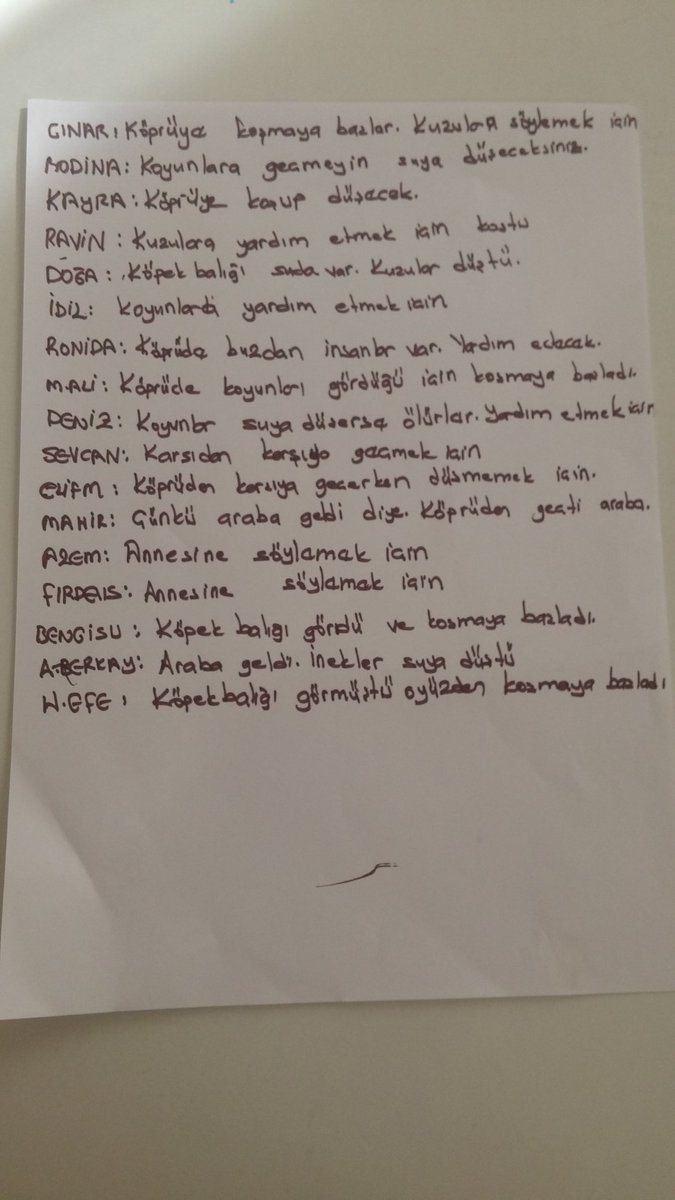 ÇINAR: Köprüye koşmaya başlar. Kuzulara söylemek için
MEDİNA: Koyunlara geçmeyin suya düşeceksiniz.
KAYRA: Köprüye koşup düşecek.
RAVİN: Kuzulara yardım etmek için koştu
DOĞA: Köpek balığı suda var. Kuzular düştü.
İDİL: Koyunlara yardım etmek için
RONİDA: Köprüde buzdan insanlar var. Yardım edecek.
M.ALİ: Köprüde koyunları gördüğü için koşmaya başladı.
DENİZ: Koyunlar suya düşerse ölürler. Yardım etmek için
SEVCAN: Karşıdan karşıya geçmek için
ELİFM: Köprüden karşıya geçerken düşmemek için.
MAHİR: Çünkü araba geldi diye. Köprüden geçti araba.
AZEM: Annesine söylemek için
FIRDEVS: Annesine söylemek için
BENGİSU: Köpek balığı gördü ve koşmaya başladı.
A.BERKAY: Araba geldi. İnekler suya düştü
H.EFE: Köpekbalığı görmüştü oyüzden koşmaya başladı